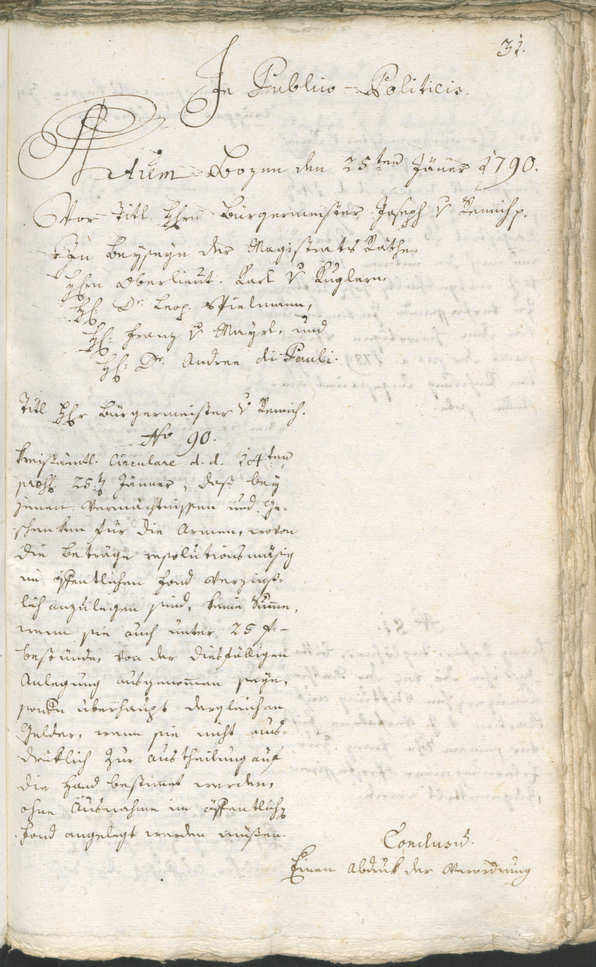 31.
In Publico-Politicis.
Actum Bozen den 25ten Jäner 1790.
Vor Titl. Herrn Bürgermeister Joseph v Remich p.
In Beyseyn der Magistrats Räthe
Herrn Oberlieut. Karl v Kuglern
H: Dr. Leop. Spielmann,
H: Franz v Mayrl, und
H: Dr. Andree di Pauli.
Titl Hr Bürgermeister v Remich.
No 90.
Kreisämtl. Circulare d. d. 14ten
praes. 25t Jänner, daß bey
jenen Vermächtnissen und Ge-
schenken für die Armen, wovon
die Beträge resolutionsmäsig
im öffentlichen Fond verzins-
lich anzulegen sind, keine Summe,
wenn sie auch unter 25 f
bestünde, von der diesfälligen
Anlegung ausgenommen seye,
sondern überhaupt dergleichen
Gelder, wenn sie nicht aus-
drüklich zur Austheilung auf
die Hand bestimt werden,
ohne Ausnahme im öffentlichen
Fond angelegt werden müßen.
Conclusum.
Einen Abdruk der Verordnung